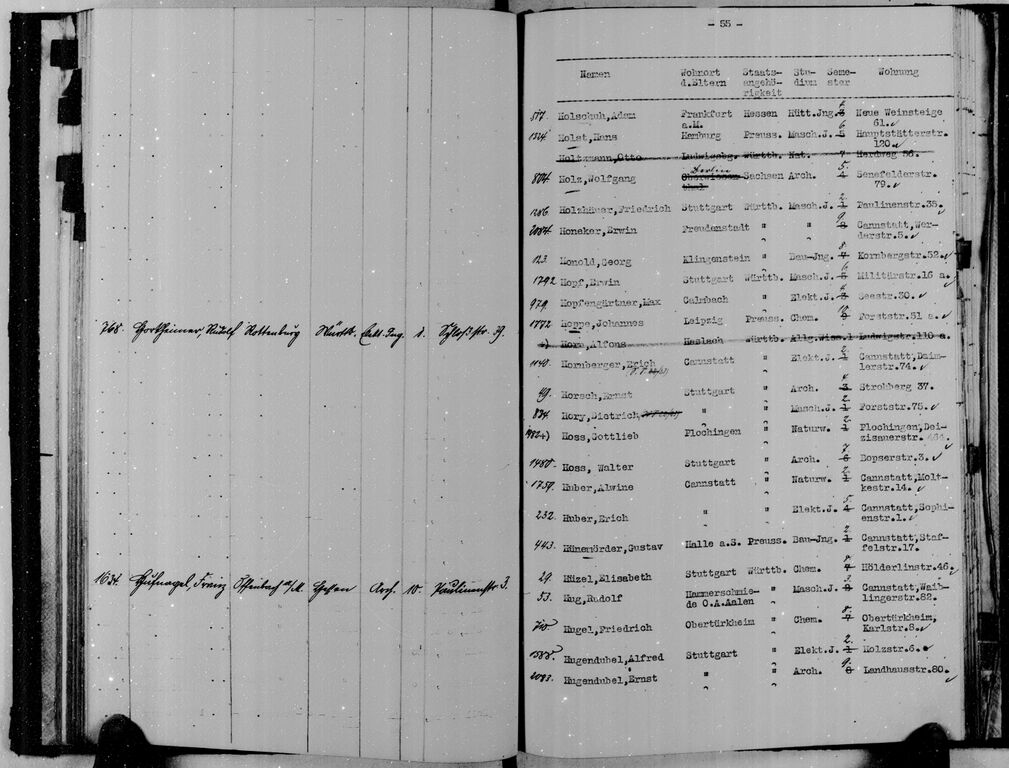 768. Hortheimer, Rudolf Rottenburg Württ. Elekt. Ing. 2. Schloßstr. 39.
1634. Hufnagel, Franz Offenbach a/M. Hessen Arch. 10. Paulinenstr. 3.
- 55 -
Namen Wohnort Staats- Stu- Seme- Wohnung
d.Eltern angehö- dium ster
rigkeit
Holschuh, Adam Frankfurt Hessen Hütt.Jng. 3 Neue Weinsteige
a.M. 61.
1324. Holst, Hans Hamburg Preuss. Masch.J. 6 5 Hauptstätterstr.
120.
Holtzmann, Otto Ludwigsbg. Württb. Nat. 7 Herdweg 56.
804. Holz, Wolfgang Berlin Oberwiesen- Sachsen Arch. 5. 4 Senefelderstr.
thal 79.
1286. Holzhäuer, Friedrich Stuttgart Württb. Masch.J. 2 1 Paulinenstr.38.
2084. Honeker, Erwin Freudenstadt " " 9 8 Cannstatt, Wer-
derstr.5.
123. Honold, Georg Klingenstein " Bau-Jng. 8 7 Kornbergstr.52.
1792 Hopf, Erwin Stuttgart Württb. Masch.J. 6 5 Militärstr.16 a.
979. Hopfengärtner, Max Calmbach " Elekt.J. 4 3 Seestr.30.
1772 Hoppe, Johannes Leipzig Preuss. Chem. 10 9 Forststr.51 a.
Horn, Alfons Haslach Württb. Allg.Wiss. 1 Ludwigstr.110 a.
1140. Hornberger, Erich Cannstatt " Elekt.J. 2 1 Cannstatt, Daim-
lerstr.74.
49. Horsch, Ernst Stuttgart " Arch. 4 3 Strohberg 37.
834. Hory, Dietrich, " " Masch.J. 2. 1 Forststr.75.
Hoss, Gottlieb Plochingen " Naturw. 2 1 Plochingen, Dei-
zisauerstr.
1480. Hoss, Walter Stuttgart " Arch. 7 6 Bopserstr.3.
1757. Huber, Alwine Cannstatt " Naturw. 2 1 Cannstatt, Molt-
kestr.14.
232. Huber, Erich " " Elekt.J. 5 4 Cannstatt, Sophi-
enstr.1.
443. Hünemörder, Gustav Halle a.S. Preuss. Bau-Jng. 2 1 Cannstatt, Staf-
felstr.17.
29. Hüzel, Elisabeth Stuttgart Württb. Chem. 8 7 Hölderlinstr.46.
53. Hug, Rudolf Hammerschmie- " Masch.J. 8 Cannstatt, Waib-
de O.A.Aalen lingerstr.82.
Hugel, Friedrich Obertürkheim " Chem. 8. 7 Obertürkheim,
Karlstr.8.
1588. Hugendubel, Alfred Stuttgart " Elekt.J. 2. 1 Holzstr.6.
2083. Hugendubel, Ernst " " Arch. 9 8 Landhausstr.80.